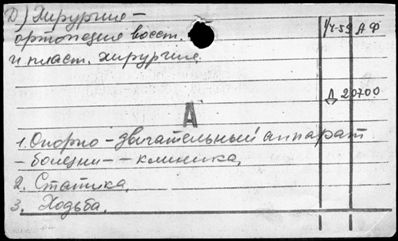 Д) Хирургия –
ортопедия восст.
и пласт. хирургия.
1/4-59 АФ
Д 20700
А
1. Опорно-двигательный аппарат
– болезни – – клиника,
2. Статика.
3. Ходьба.